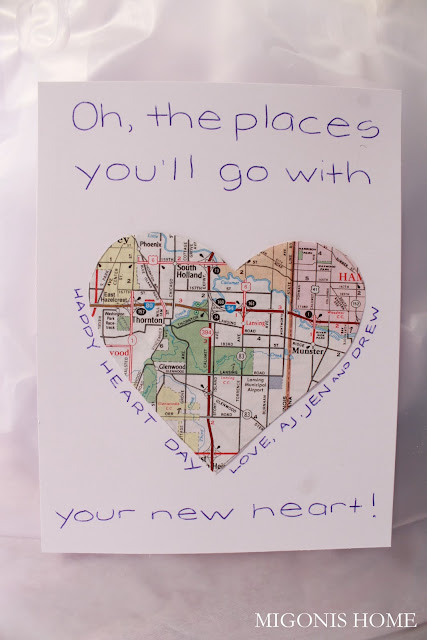 Oh, the places
you'll go with
Phoenix
South
Holland
East
Hazelcrest
Washington
Park
Race
Track
Thornton
Lansing
Munster
Glenwood
Lansing
Municipal
Airport
HAPPY HEART DAY
LOVE, AJ, JEN AND DREW
your new heart!
MIGONIS HOME